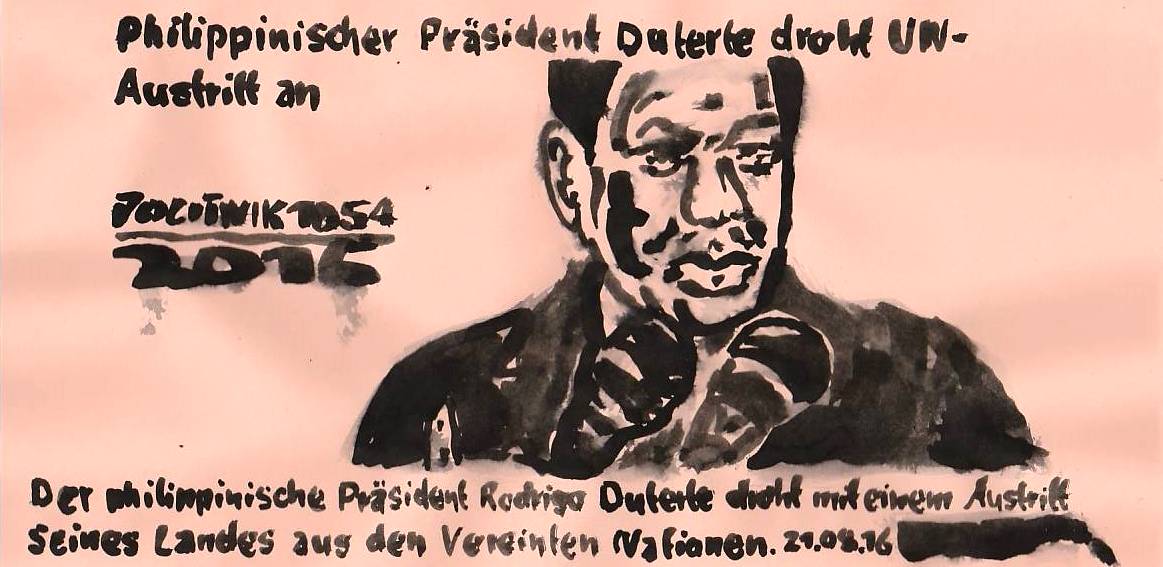 Philippinischer Präsident Duterte droht UN-
Austritt an
2016
Der philippinische Präsident Rodrigo Duterte droht mit einem Austritt
seines Landes aus den Vereinten Nationen. 21.08.16